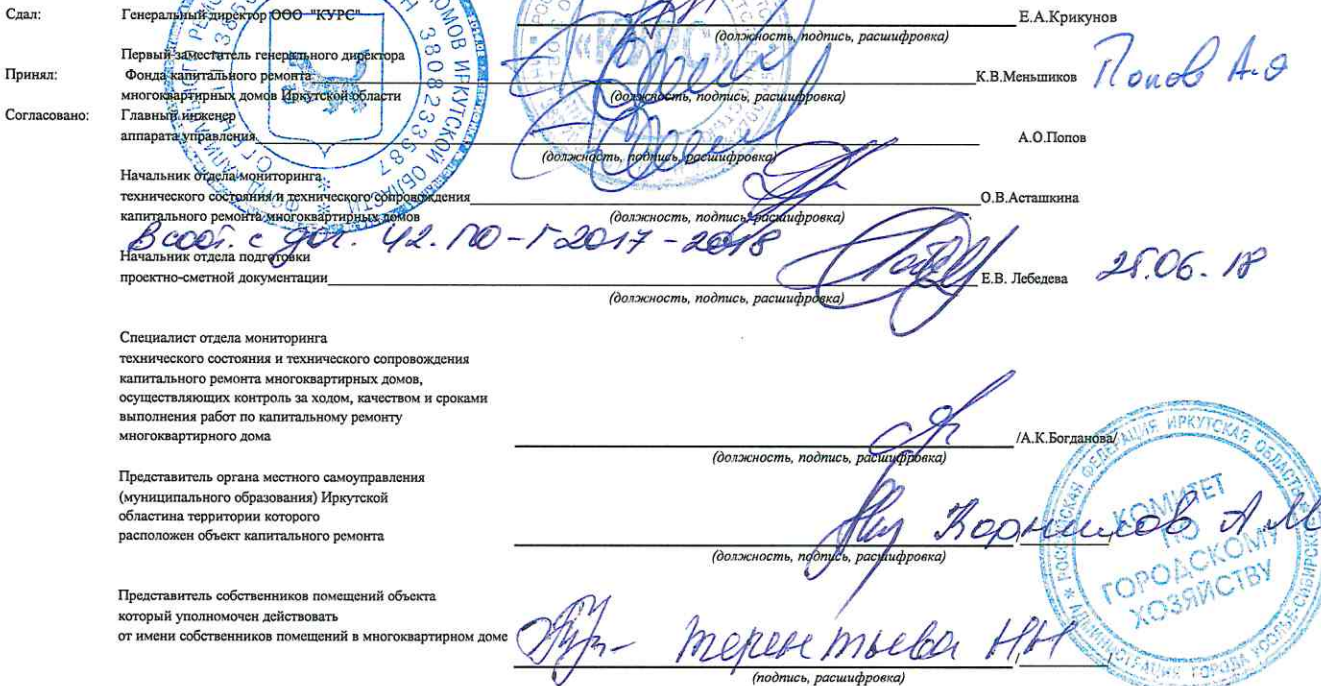 Сдал: Генеральный директор ООО "КУРС" Е.А.Крикунов
(должность, подпись, расшифровка)
Первый заместитель генерального директора
Принял: Фонда капитального ремонта К.В.Меньшиков Попов А.О
многоквартирных домов Иркутской области (должность, подпись, расшифровка)
Согласовано: Главный инженер
аппарата управления А.О.Попов
(должность, подпись, расшифровка)
Начальник отдела мониторинга
технического состояния и технического сопровождения О.В.Асташкина
капитального ремонта многоквартирных домов (должность, подпись, расшифровка)
В соот. с дог. 42. ПО-Г 2017-2018
Начальник отдела подготовки
проектно-сметной документации Е.В. Лебедева 25.06.18
(должность, подпись, расшифровка)
Специалист отдела мониторинга
технического состояния и технического сопровождения
капитального ремонта многоквартирных домов,
осуществляющих контроль за ходом, качеством и сроками
выполнения работ по капитальному ремонту
многоквартирного дома /А.К.Богданова/
(должность, подпись, расшифровка)
Представитель органа местного самоуправления
(муниципального образования) Иркутской
областина территории которого
расположен объект капитального ремонта
(должность, подпись, расшифровка)
Представитель собственников помещений объекта
который уполномочен действовать
от имени собственников помещений в многоквартирном доме Терентьева НН
(подпись, расшифровка)
ДОМОВ ИРКУТСКОЙ ОБЛАСТИ
3808233587
«КУРС»
РОССИЙСКАЯ ФЕДЕРАЦИЯ ИРКУТСКАЯ ОБЛАСТЬ
АДМИНИСТРАЦИЯ ГОРОДА УСОЛЬЕ-СИБИРСКОЕ
КОМИТЕТ
ПО
ГОРОДСКОМУ
ХОЗЯЙСТВУ